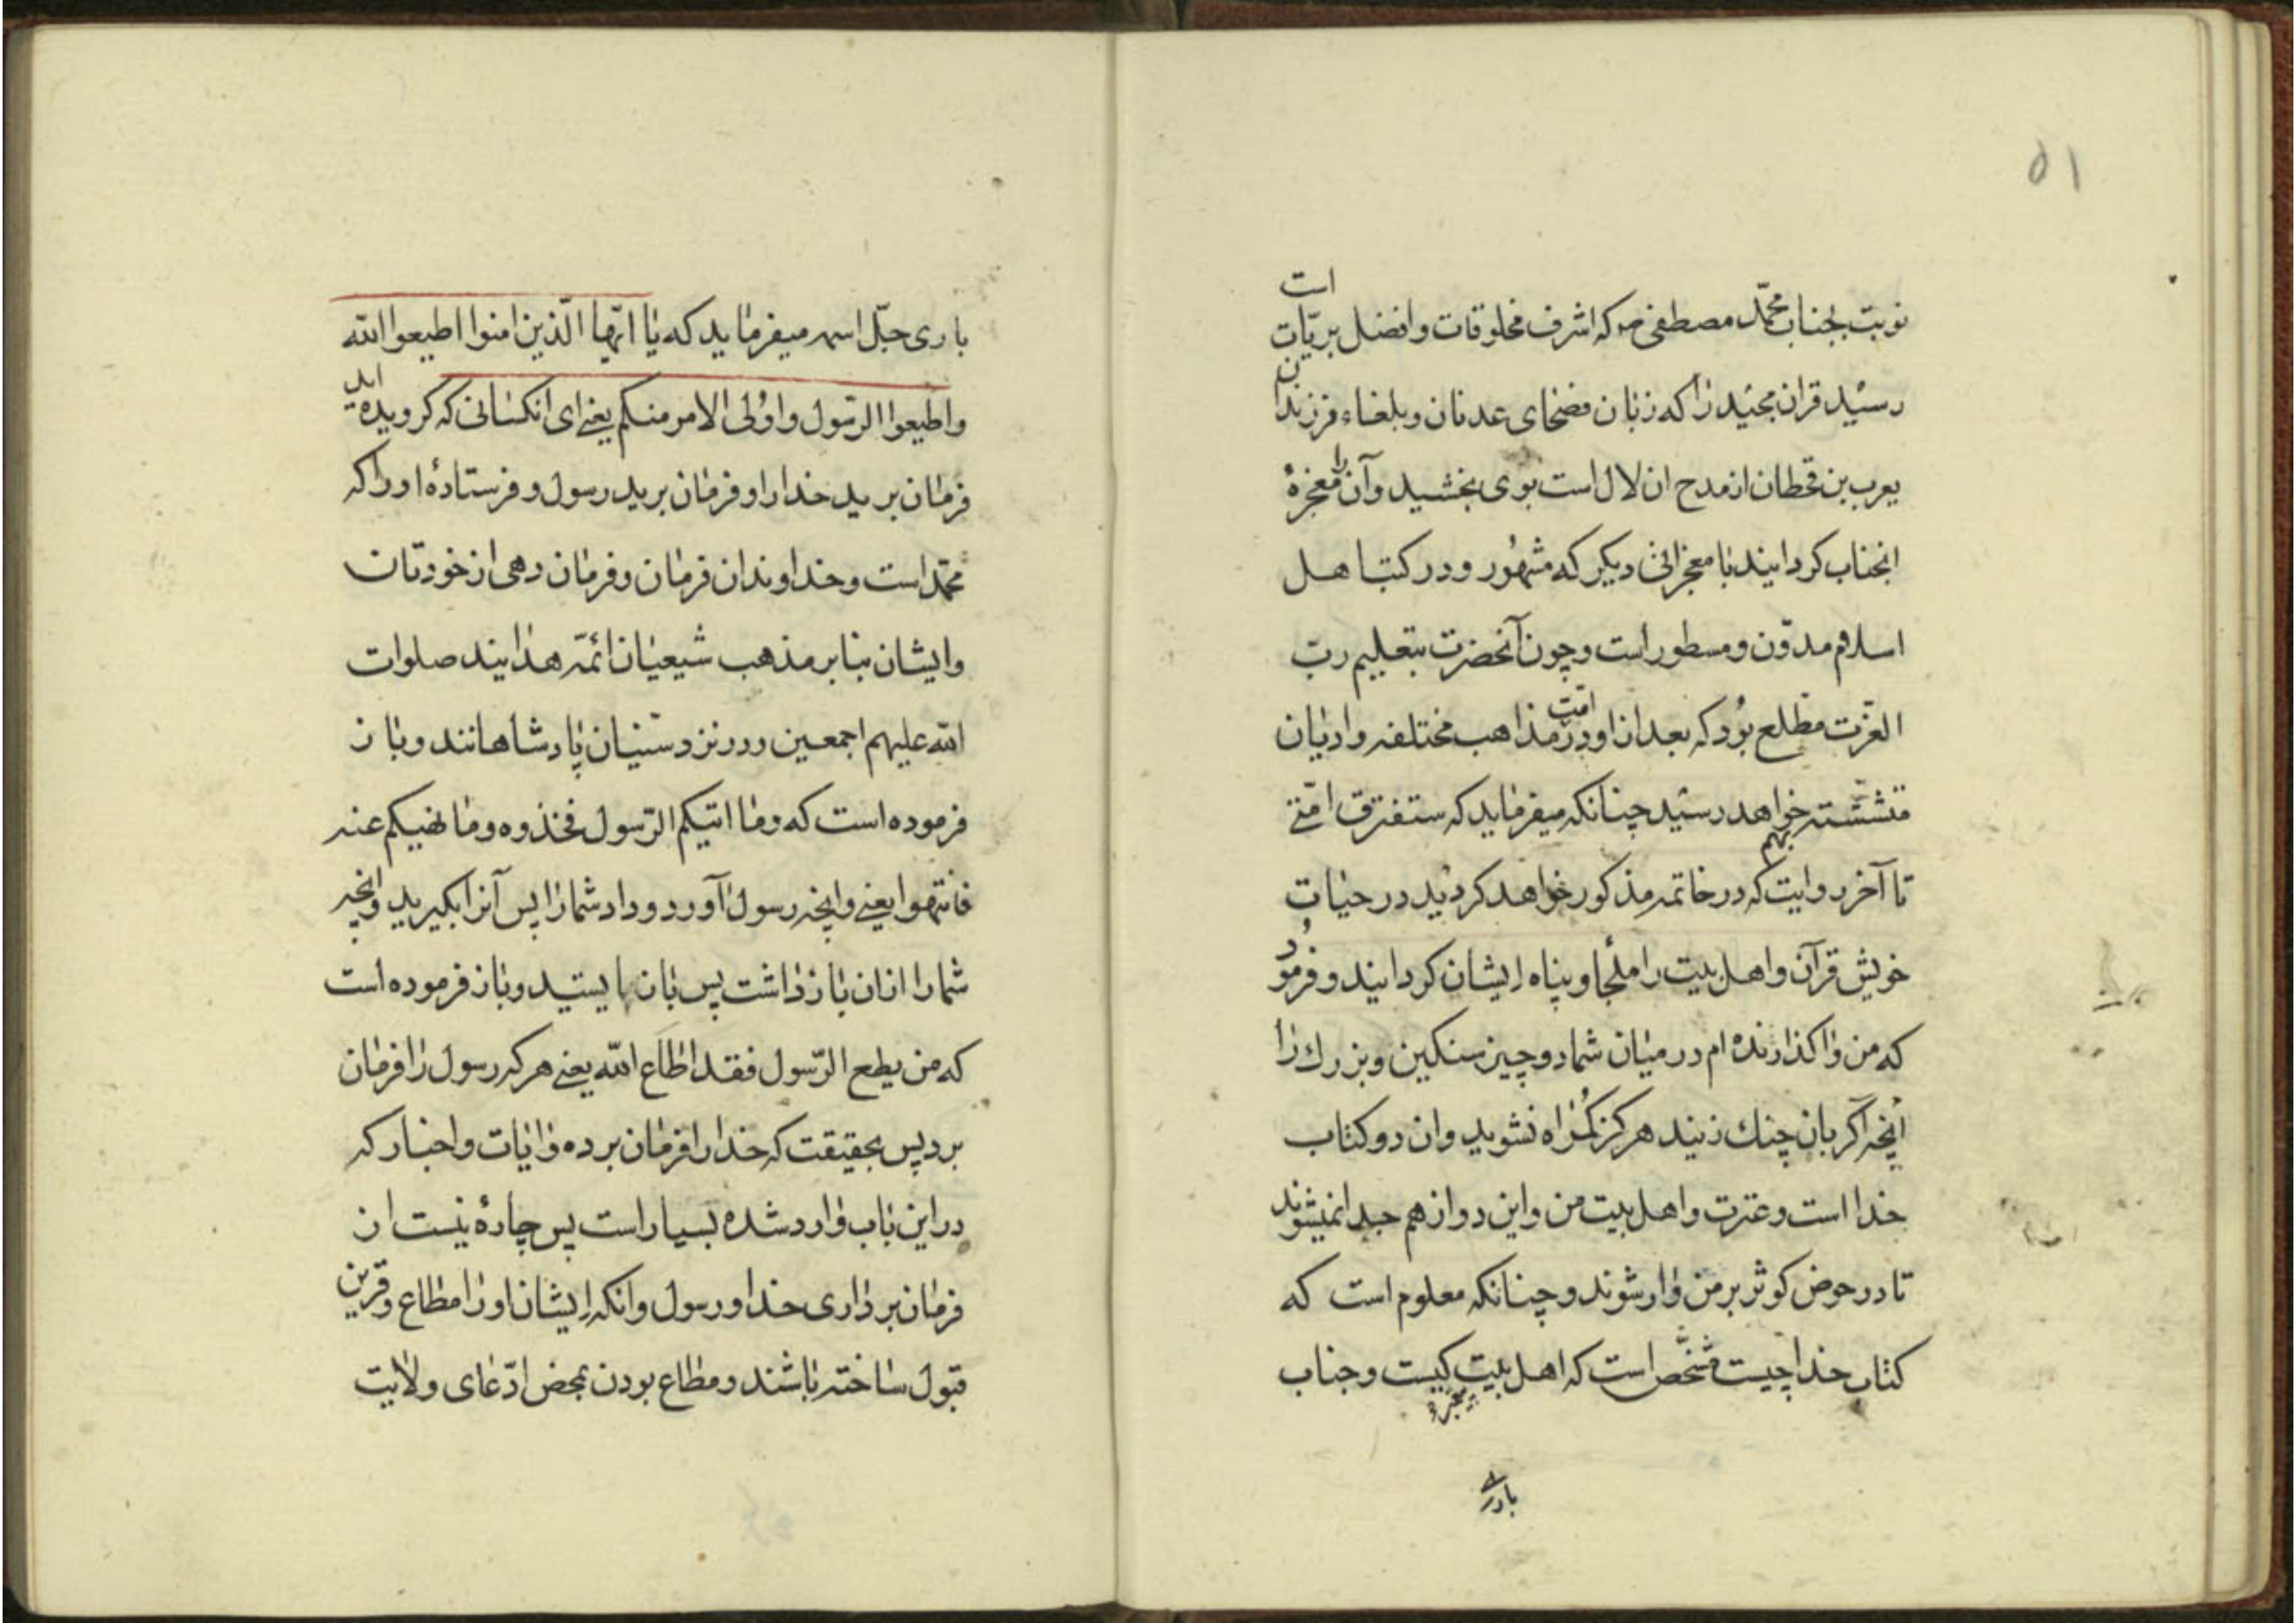 ۵۱
نوبت بجناب محمّد مصطفی ص که اشرف مخلوقات وافضل بریّات است
رسید قران مجید را که زبان فصحای عدنان و بلغاء فرزندان
یعرب بن قحطان از مدح ان لال است بوی بخشید و آن را معجزهٔ
انجناب کردانید با معجزاتی دیکر که مشهور و در کتب اهل
اسلام مدوّن و مسطور است و چون آنحضرت بتعلیم ربّ
العزّت مطّلع بود که بعد از او در امّت مذاهب مختلفه و ادیان
متشتّته بهم خواهد رسید چنانکه میفرماید که ستفترق امّتی
تا آخر روایت که در خاتمه مذکور خواهد کردید در حیات
خویش قرآن و اهل بیت را ملجأ و پناه ایشان کردانید و فرمود
که من واکذارنده ام در میان شما دو چیز سنکین و بزرك را
آنچه اکر بان چنك زنید هرکز کمراه نشوید و ان دو کتاب
خدا است و عترت و اهل بیت من و این دو از هم جدا نمیشوند
تا در حوض کوثر بر من وارشوند و چنانکه معلوم است که
کتاب خدا چیست مشخّص است که اهل بیت پیغمبر کیست و جناب
باری
باری جلّ اسمه میفرماید که یا ایّها الّذین امنوا اطیعوا الله
واطیعوا الرّسول واولی الامر منکم یعنی ای انکسانی که کرویده اید
فرمان برید خدا را و فرمان برید رسول و فرستادهٔ او را که
محمّد است و خداوندان فرمان و فرمان دهی از خودتان
وایشان بنا بر مذهب شیعیان ائمّه هدایند صلوات
الله علیهم اجمعین و در نزد سنّیان پادشاهانند و باز
فرموده است که وما اتیکم الرّسول فخذوه وما نهیکم عنه
فانتهوا یعنی وانچه رسول آورد و داد شما را پس آنرا بکیرید وانچه
شما را از ان باز داشت پس بان بایستید و باز فرموده است
که من یطع الرّسول فقد اطاع الله یعنی هر که رسول را فرمان
برد پس بحقیقت که خدا را فرمان برده و ایات و اخبار که
در این باب وارد شده بسیار است پس چارهٔ نیست از
فرمان برداری خدا و رسول وانکه ایشان او را مطاع و قرین
قبول ساخته باشند و مطاع بودن بمحض ادّعای ولایت